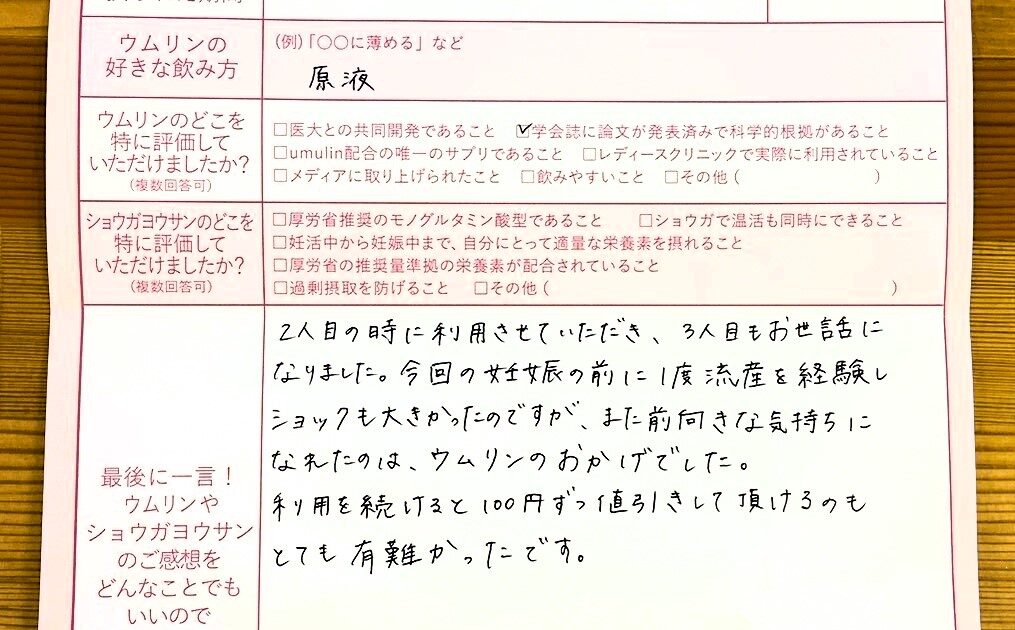 ウムリンの
好きな飲み方
(例)「〇〇に薄める」など
原液
ウムリンのどこを
特に評価して
いただけましたか?
(複数回答可)
□医大との共同開発であること ☑学会誌に論文が発表済みで科学的根拠があること
□umulin配合の唯一のサプリであること □レディースクリニックで実際に利用されていること
□メディアに取り上げられたこと □飲みやすいこと □その他 ( )
ショウガヨウサンのどこを
特に評価して
いただけましたか?
(複数回答可)
□厚労省推奨のモノグルタミン酸型であること □ショウガで温活も同時にできること
□妊活中から妊娠中まで、自分にとって適量な栄養素を摂れること
□厚労省の推奨量準拠の栄養素が配合されていること
□過剰摂取を防げること □その他 ( )
最後に一言!
ウムリンや
ショウガヨウサン
のご感想を
どんなことでも
いいので
2人目の時に利用させていただき、3人目もお世話に
なりました。今回の妊娠の前に1度流産を経験し
ショックも大きかったのですが、また前向きな気持ちに
なれたのは、ウムリンのおかげでした。
利用を続けると100円ずつ値引きして頂けるのも
とても有難かったです。